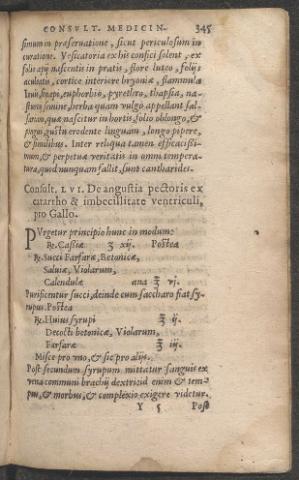 CONSVLT. MEDICIN- 345
simum in præseruatione, sicut periculosum in
curatione. Vesicatoria ex his confici solent, ex
folio apij nascentis in pratis, flore luteo, folijs
aculeatis, cortice interiore bryoniæ, flammula
Iouis, sinapi, euphorbio, pyrethro, thapsia, na-
sturtij semine, herba quam vulgò appellant sal-
saram, quæ nascitur in hortis folio oblongo, &
pingui gustu erodente linguam, longo pipere,
& similibus. Inter reliqua tamen efficacissi-
mum, & perpetuæ veritatis in omni tempera-
tura, quod nunquam fallit, sunt cantharides.
Consult. LVI. De angustia pectoris ex
catarrho & imbecillitate ventriculi,
pro Gallo.
PVrgetur principio hunc in modum:
℞. Cassiæ ʒ xij. Postea
℞. Succi Farfaræ, Betonicæ,
Saluiæ, Violarum,
Calendulæ ana ℥ vj.
Purificentur succi, deinde cum saccharo fiat sy-
rupus. Postea
℞. Huius syrupi ℥ ij.
Decocti betonicæ, Violarum,
Farfaræ ℥ iij.
Misce pro vno, & sic pro alijs.
Post secundum syrupum mittatur sanguis ex
vena communi brachij dextri: id enim & tem-
pus, & morbus, & complexio exigere videtur.
Y 5 Post